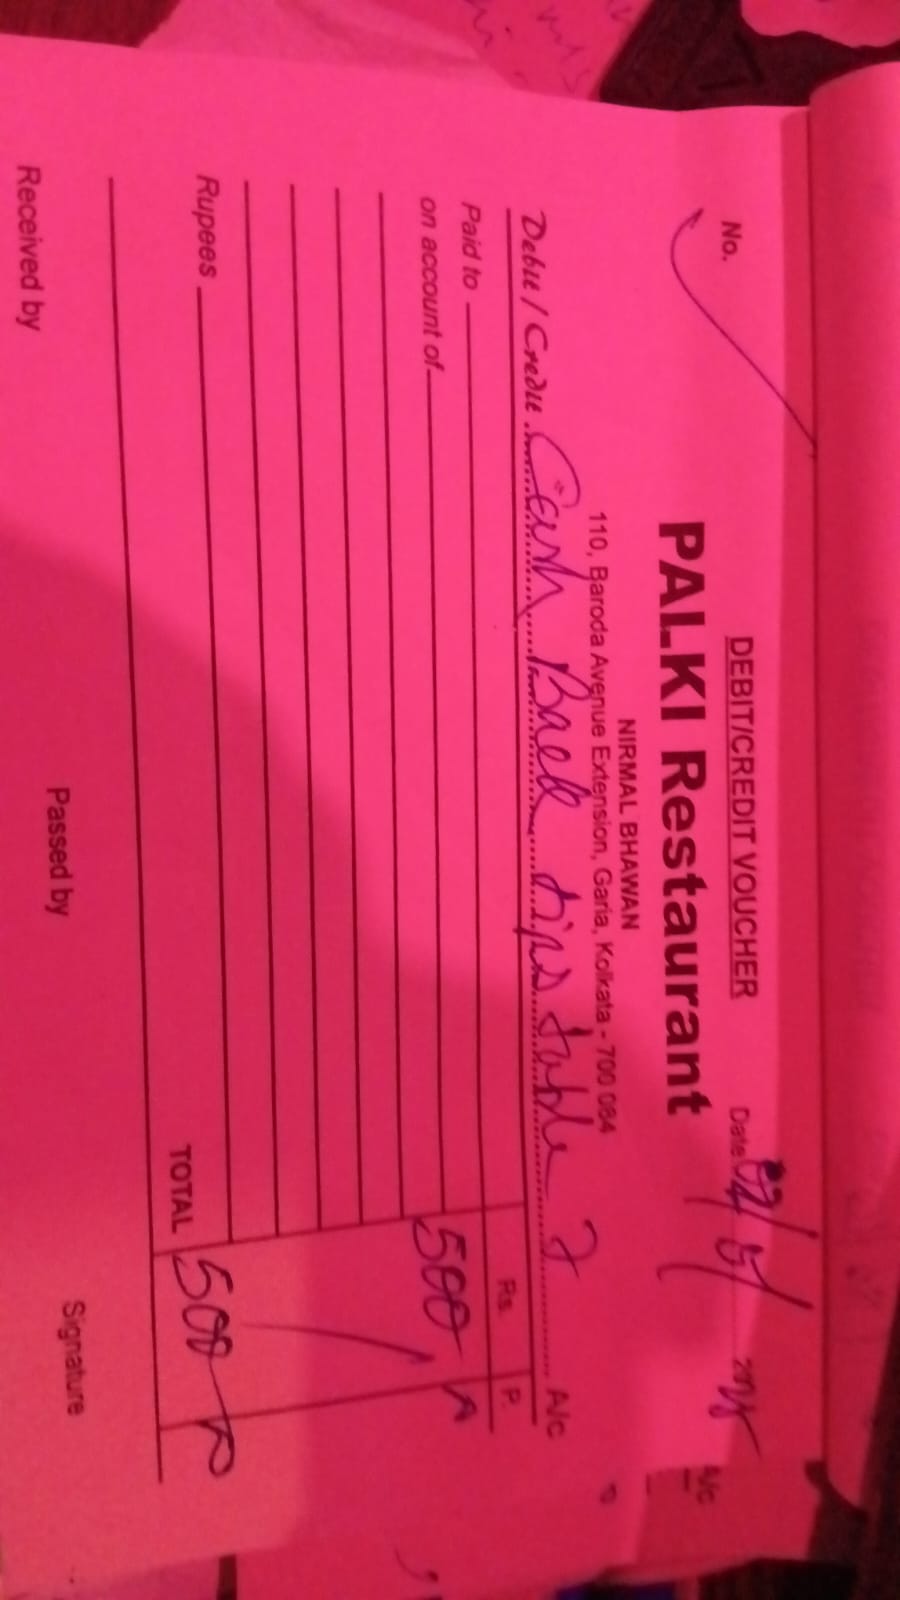 DEBIT/CREDIT VOUCHER
No. Date 02/5/
PALKI Restaurant
NIRMAL BHAWAN
110, Baroda Avenue Extension, Garia, Kolkata - 700 084
Debit / Credit Cash Back tips table 7 A/c
Paid to Rs. P.
on account of 500
Rupees TOTAL 500
Received by Passed by Signature